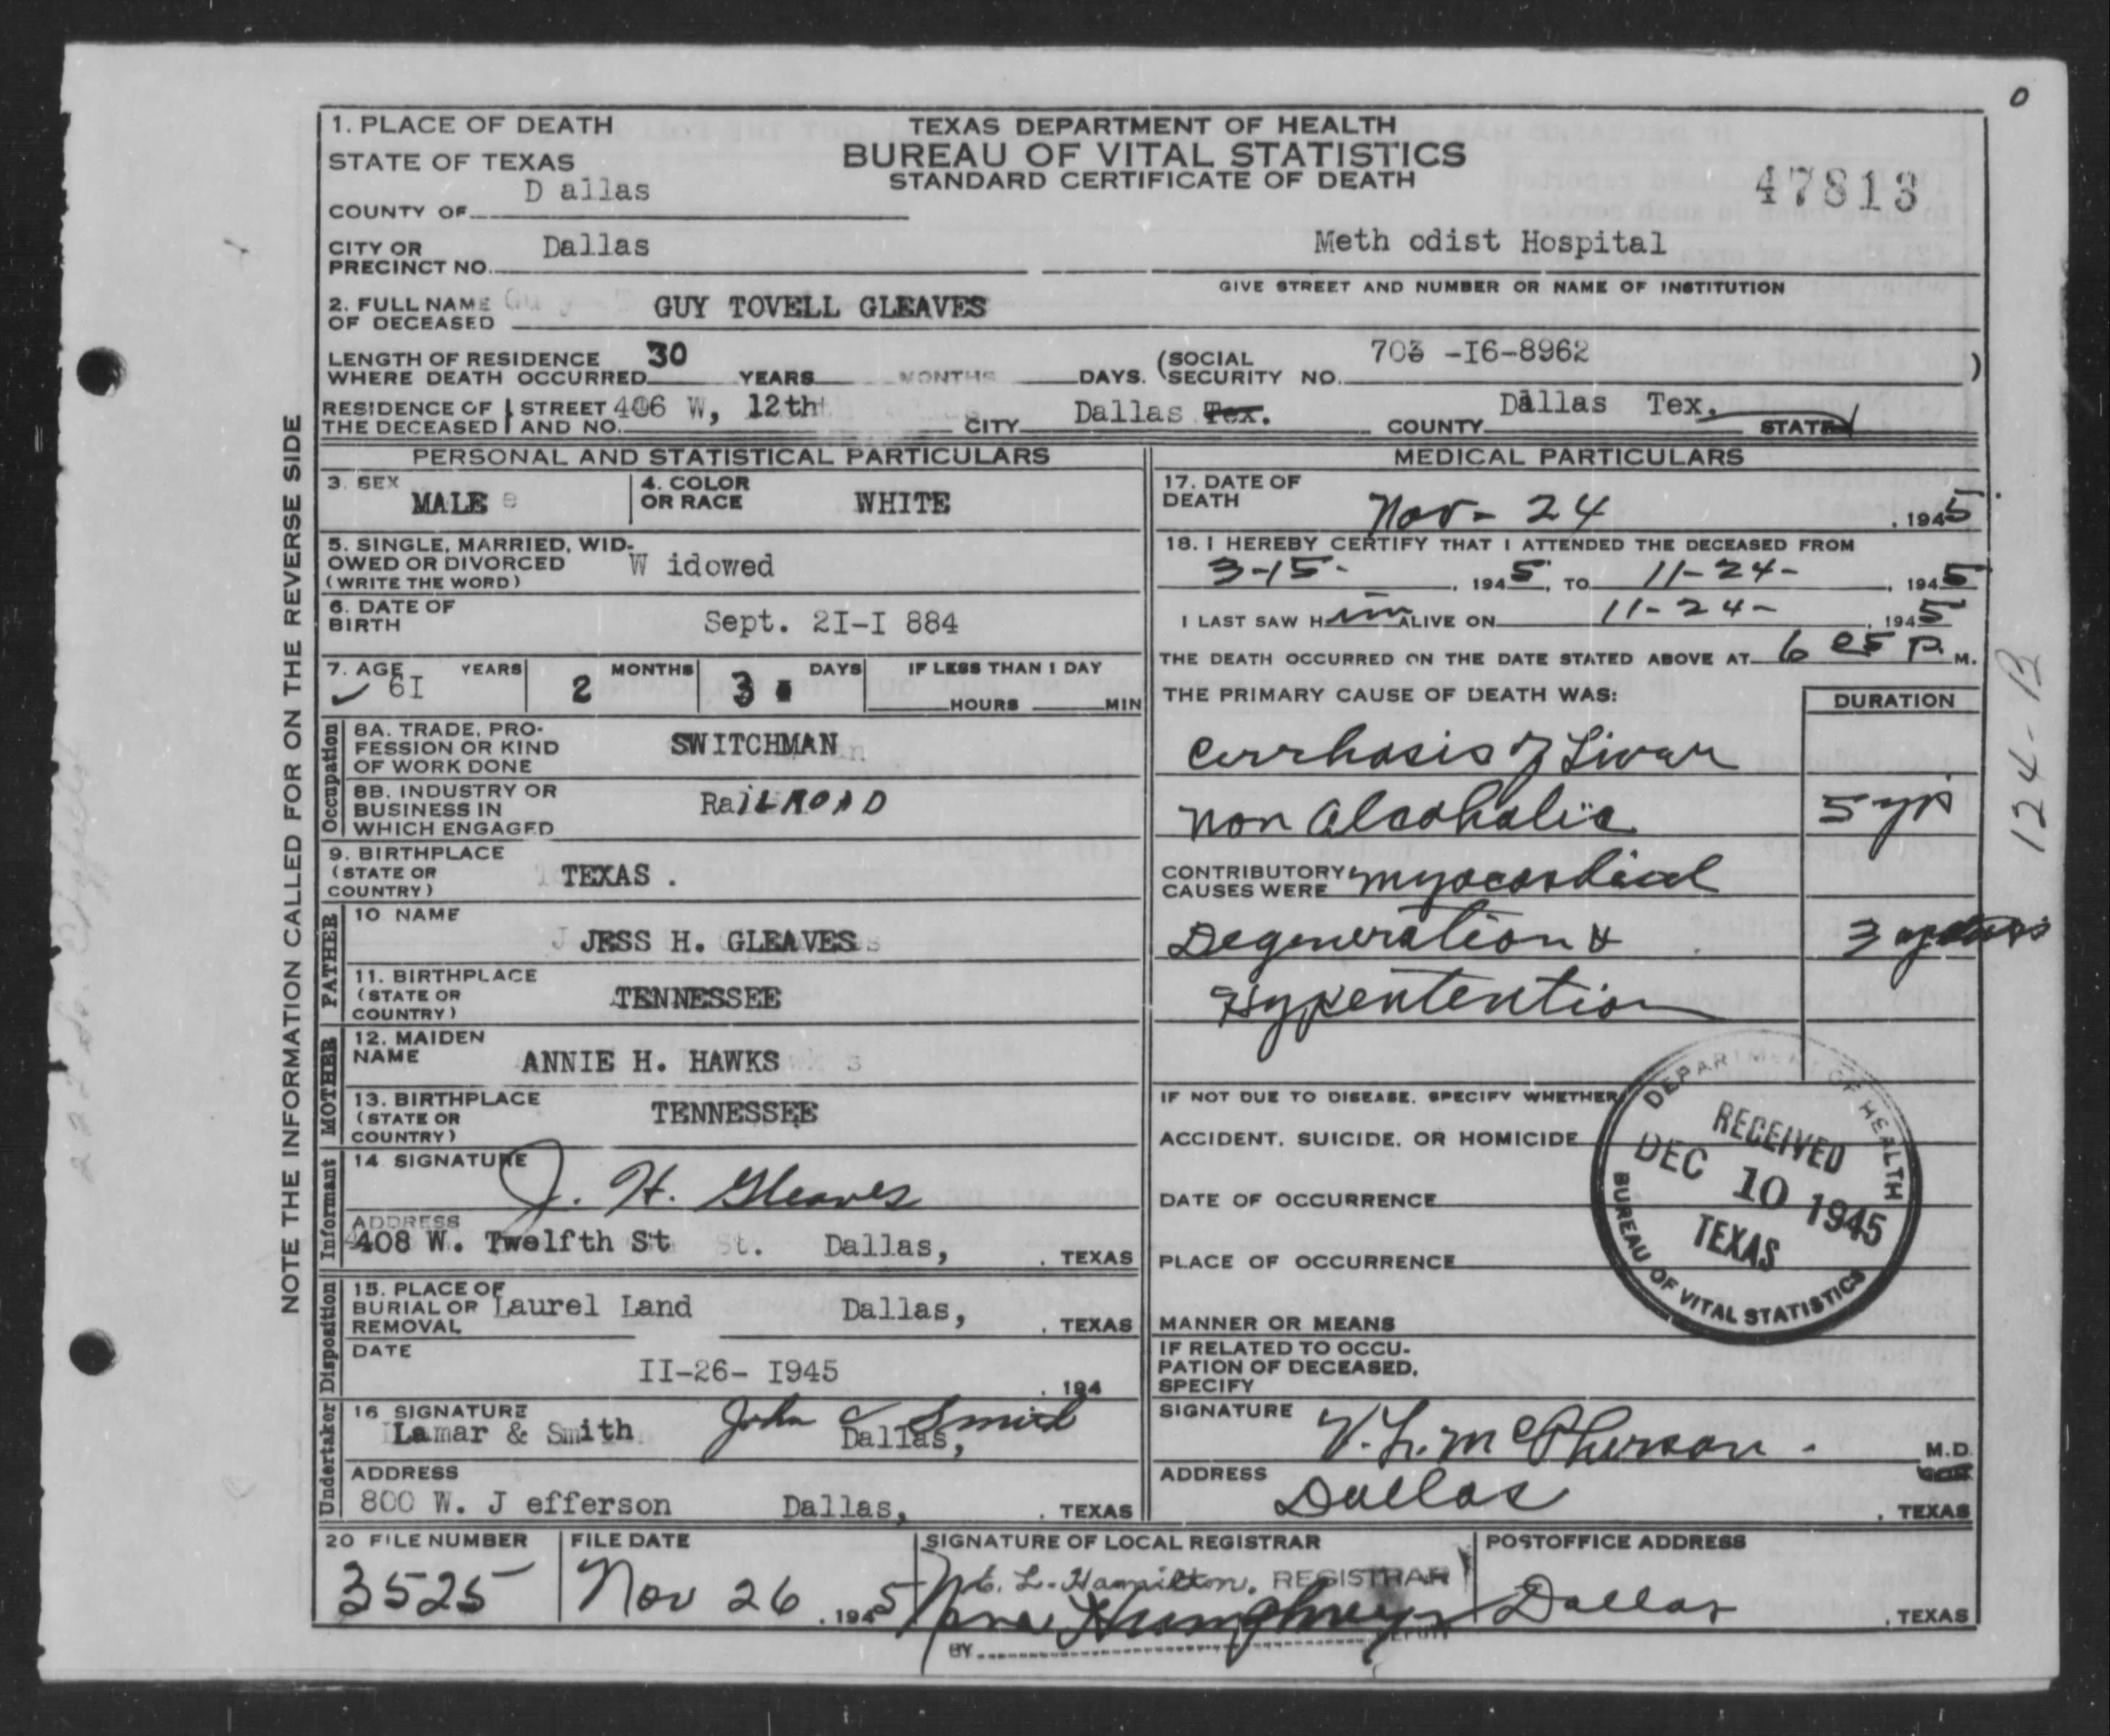 O
1. PLACE OF DEATH
STATE OF TEXAS
COUNTY OF D allas
TEXAS DEPARTMENT OF HEALTH
BUREAU OF VITAL STATISTICS
STANDARD CERTIFICATE OF DEATH
47813
CITY OR PRECINCT NO. Dallas
Meth odist Hospital
GIVE STREET AND NUMBER OR NAME OF INSTITUTION
2. FULL NAME OF DECEASED GUY TOVELL GLEAVES
LENGTH OF RESIDENCE WHERE DEATH OCCURRED 30 YEARS MONTHS DAYS. (SOCIAL SECURITY NO. 703 -I6-8962 )
RESIDENCE OF THE DECEASED STREET AND NO. 406 W, 12th CITY Dallas Tex. COUNTY Dallas Tex. STATE
NOTE THE INFORMATION CALLED FOR ON THE REVERSE SIDE
PERSONAL AND STATISTICAL PARTICULARS
3. SEX MALE
4. COLOR OR RACE WHITE
5. SINGLE, MARRIED, WIDOWED OR DIVORCED (WRITE THE WORD) W idowed
6. DATE OF BIRTH Sept. 2I-I 884
7. AGE 6I YEARS 2 MONTHS 3 DAYS IF LESS THAN 1 DAY HOURS MIN
Occupation
8A. TRADE, PROFESSION OR KIND OF WORK DONE SWITCHMAN
8B. INDUSTRY OR BUSINESS IN WHICH ENGAGED RaILROAD
9. BIRTHPLACE (STATE OR COUNTRY) TEXAS .
FATHER
10 NAME JESS H. GLEAVES
11. BIRTHPLACE (STATE OR COUNTRY) TENNESSEE
MOTHER
12. MAIDEN NAME ANNIE H. HAWKS
13. BIRTHPLACE (STATE OR COUNTRY) TENNESSEE
Informant
14 SIGNATURE J. H. Gleaves
ADDRESS 408 W. Twelfth St Dallas, . TEXAS
Disposition
15. PLACE OF BURIAL OR REMOVAL Laurel Land Dallas, . TEXAS
DATE II-26- I945 . 194
Undertaker
16 SIGNATURE Lamar & Smith John C Smith Dallas,
ADDRESS 800 W. J efferson Dallas, . TEXAS
MEDICAL PARTICULARS
17. DATE OF DEATH Nov- 24 , 1945
18. I HEREBY CERTIFY THAT I ATTENDED THE DECEASED FROM
3-15- , 1945, TO 11-24- , 1945
I LAST SAW Him ALIVE ON 11-24- , 1945
THE DEATH OCCURRED ON THE DATE STATED ABOVE AT 6 05 P. M.
THE PRIMARY CAUSE OF DEATH WAS: DURATION
Cirrhosis of Liver
non Alcoholic 5 yrs
CONTRIBUTORY CAUSES WERE myocardial
Degeneration & 3 years
Hypentention
124-B
IF NOT DUE TO DISEASE, SPECIFY WHETHER
ACCIDENT, SUICIDE, OR HOMICIDE
DATE OF OCCURRENCE
PLACE OF OCCURRENCE
MANNER OR MEANS
IF RELATED TO OCCUPATION OF DECEASED, SPECIFY
DEPARTMENT OF HEALTH
RECEIVED
DEC 10 1945
TEXAS
BUREAU OF VITAL STATISTICS
SIGNATURE V. L. McPherson . M.D.
ADDRESS Dallas , TEXAS
20 FILE NUMBER 3525
FILE DATE Nov 26 , 1945
SIGNATURE OF LOCAL REGISTRAR
L. Hamilton, REGISTRAR
BY Humphreys DEPUTY
POSTOFFICE ADDRESS Dallas , TEXAS